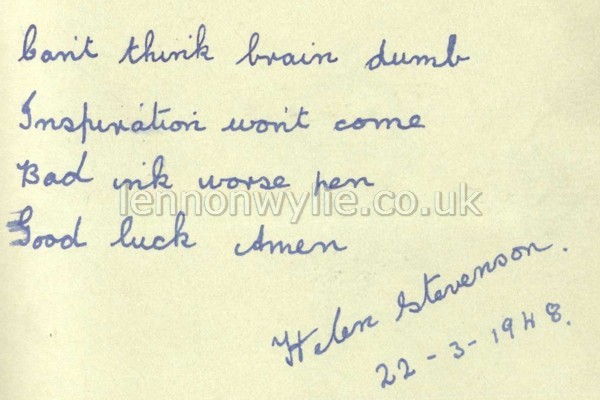 Can't think brain dumb
Inspiration won't come
Bad ink worse pen
lennonwylie.co.uk
Good luck Amen
Helen Stevenson.
22-3-1948.